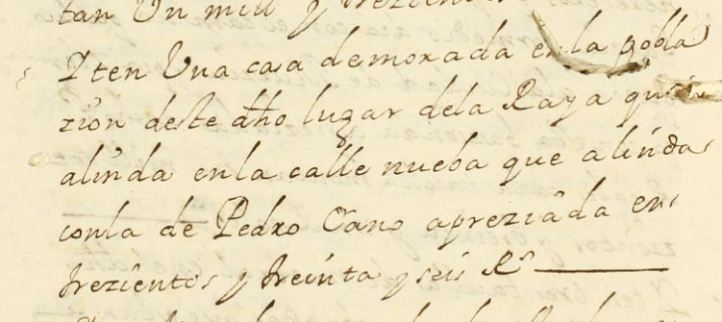 tan Un mill y trezien
Yten Una casa demorada en la pobla
zion deste dho lugar dela Raya que
alinda enla calle nueba que alinda
conla de Pedro Cano apreziada en
trezientos y treinta y seis Rs